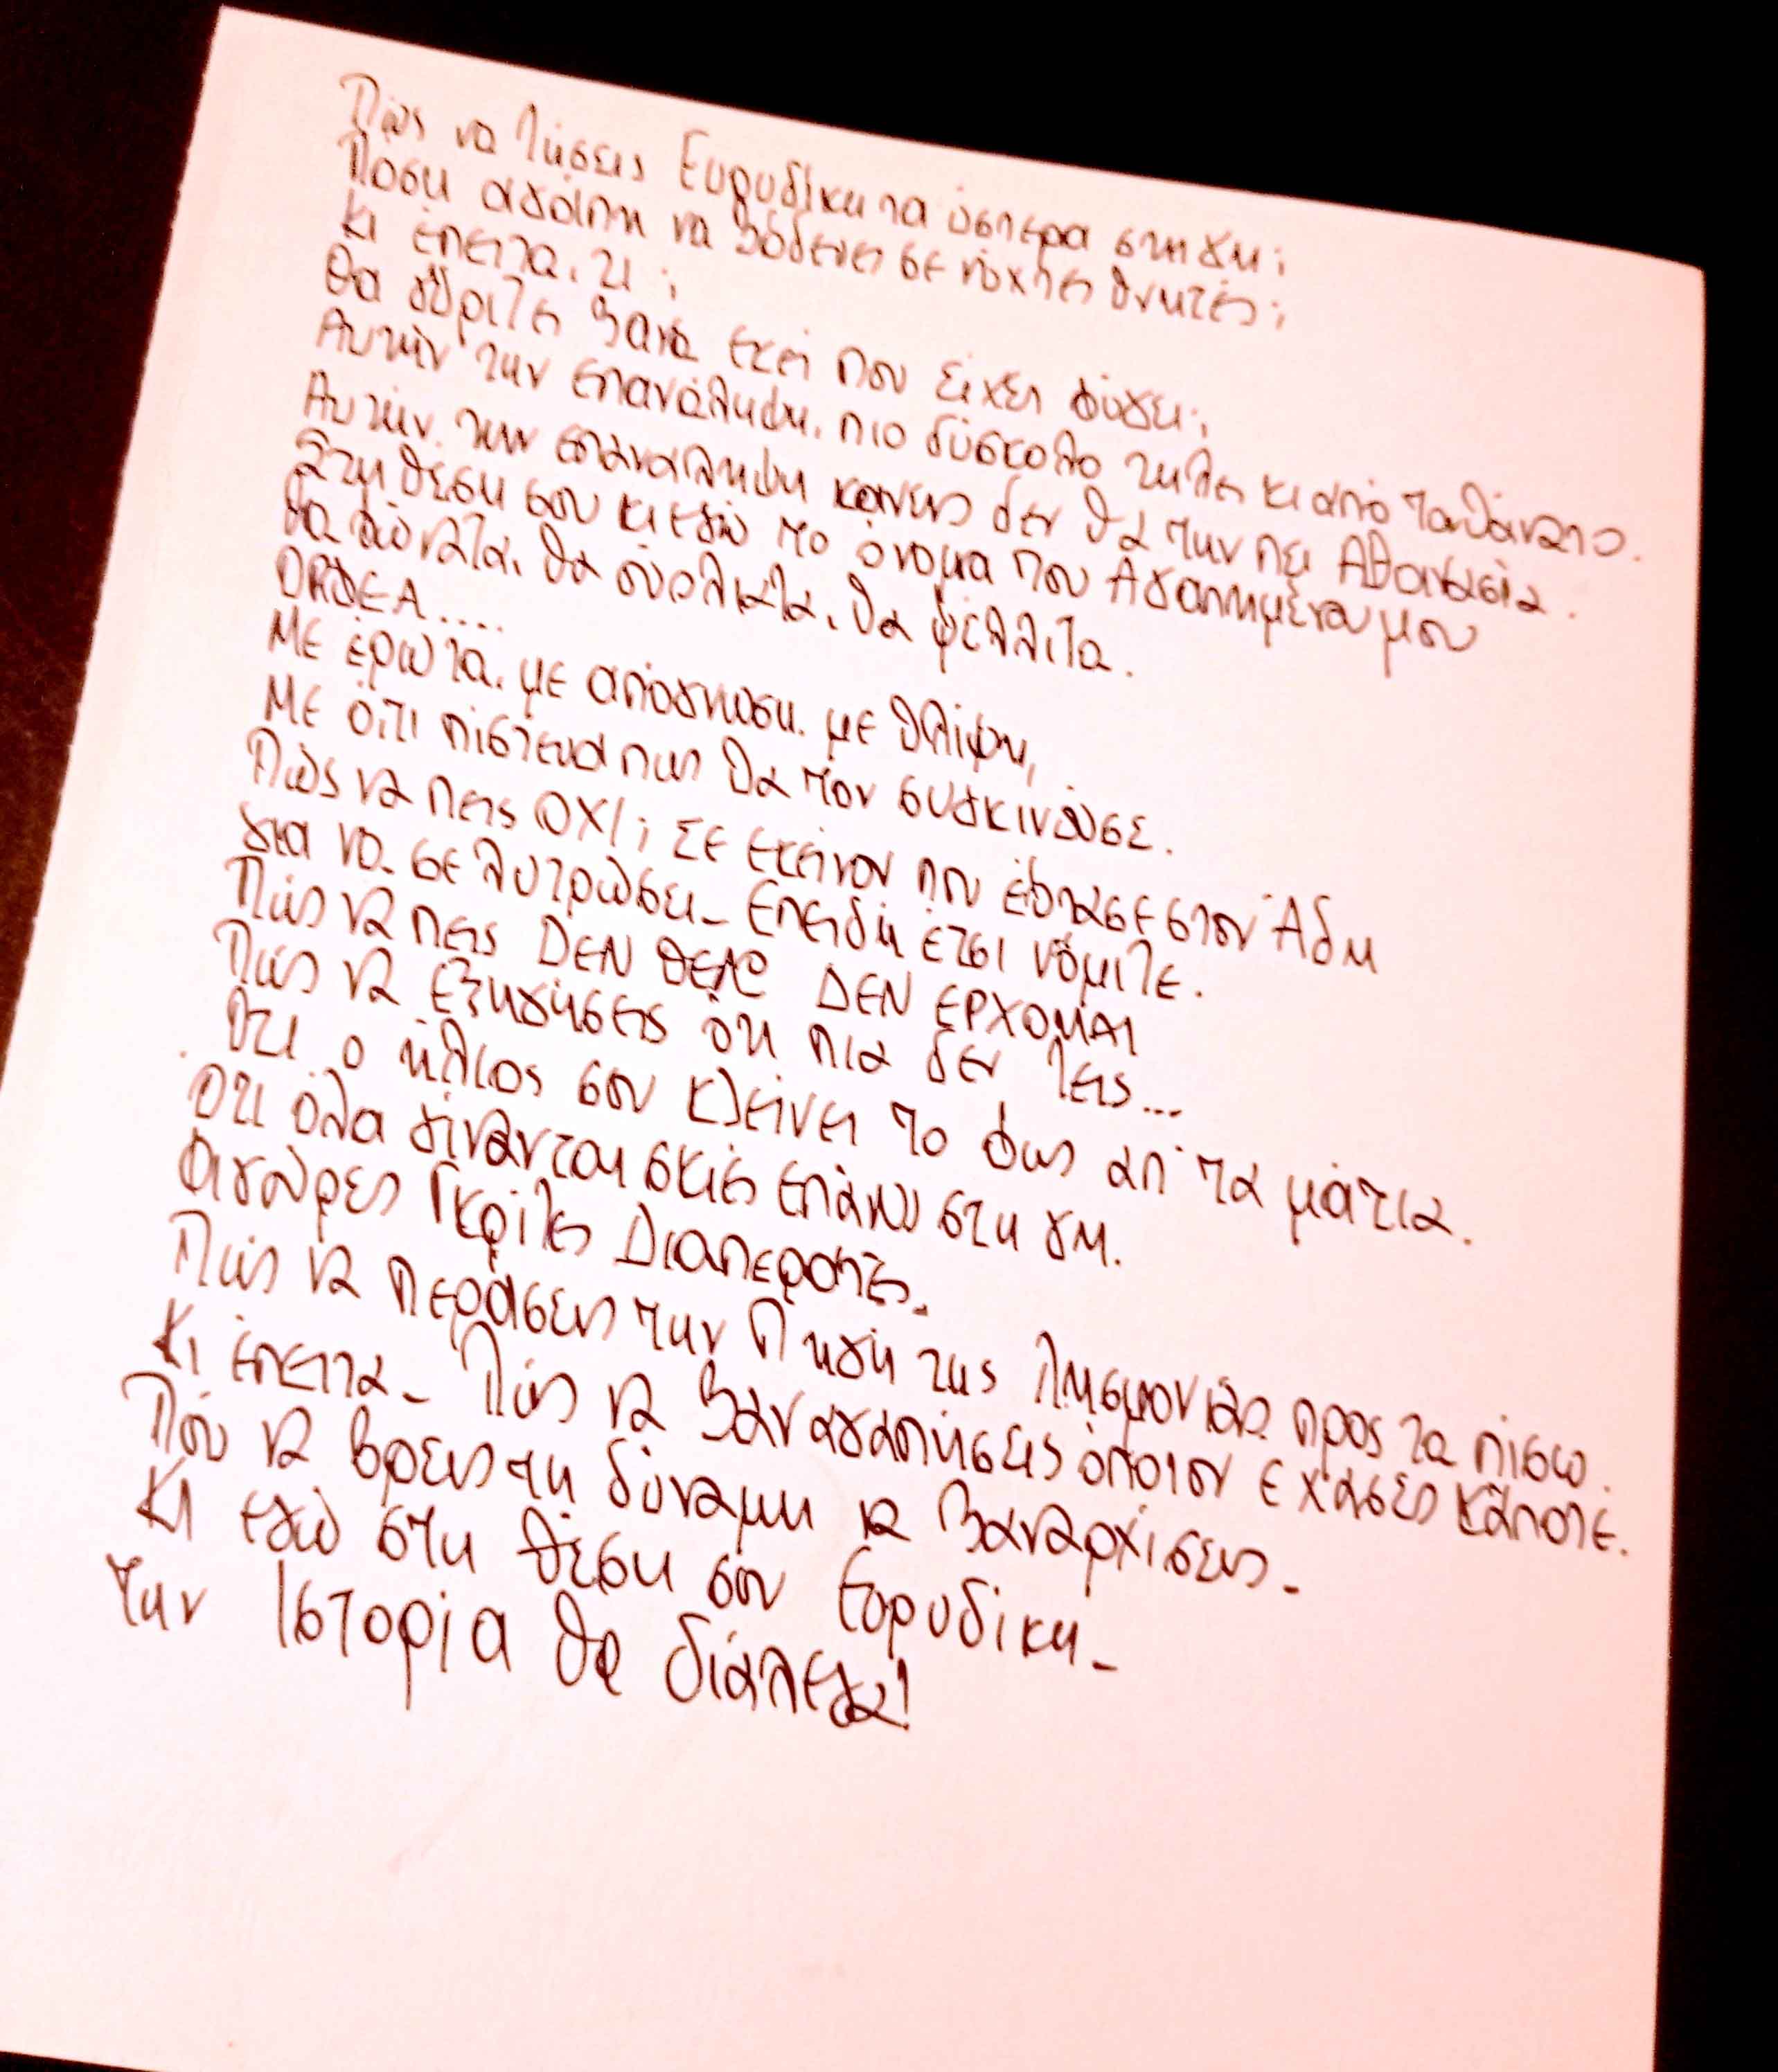 Πώς να ζήσεις Ευρυδίκη τα ύστερα στη γη;
Πόση αγάπη να ξόδευει σε νύχτες θνητές;
Κι έπειτα. τι;
Θα γύριζες ξανά εκεί που είχες φύγει;
Αυτήν την επανάληψη, πιο δύσκολο τηλες κι από το θάνατο.
Αυτήν. την επανάληψη κανείς δεν θα την πει Αθανασία.
Στη θέση σου κι εγώ το όνομα του Αγαπημένου μου
θα φώναζα, θα ούρλιαζα, θα ψέλλιζα.
ΟΡΦΕΑ....
Με έρωτα. με απόγνωση. με θλίψη,
Με ό,τι πίστευα πως θα τον συγκινούσε.
Πώς να πεις ΟΧΙ; Σε εκείνον που έφτασε στον Άδη
για να σε λυτρώσει_ Επειδή έτσι νόμιζε.
Πώς να πεις ΔΕΝ ΘΕΛΩ ΔΕΝ ΕΡΧΟΜΑΙ
Πώς να εξηγήσεις ότι πια δεν ζεις...
Ότι ο ήλιος σου κλείνει το φως απ' τα μάτια.
Ότι όλα γίνανται σκιές επάνω στη γη.
Φιγούρες Γκρίζες Διαπερατές.
Πώς να περάσεις την Πηγή της Λησμονιάς προς τα πίσω.
Κι έπειτα_ Πώς να ξαναγαπήσεις όποιον έχασες κάποτε.
Πού να βρεις τη δύναμη να ξαναρχίσεις_
Κι εγώ στη θέση σου Ευρυδίκη_
την Ιστορία θα διάλεγα!